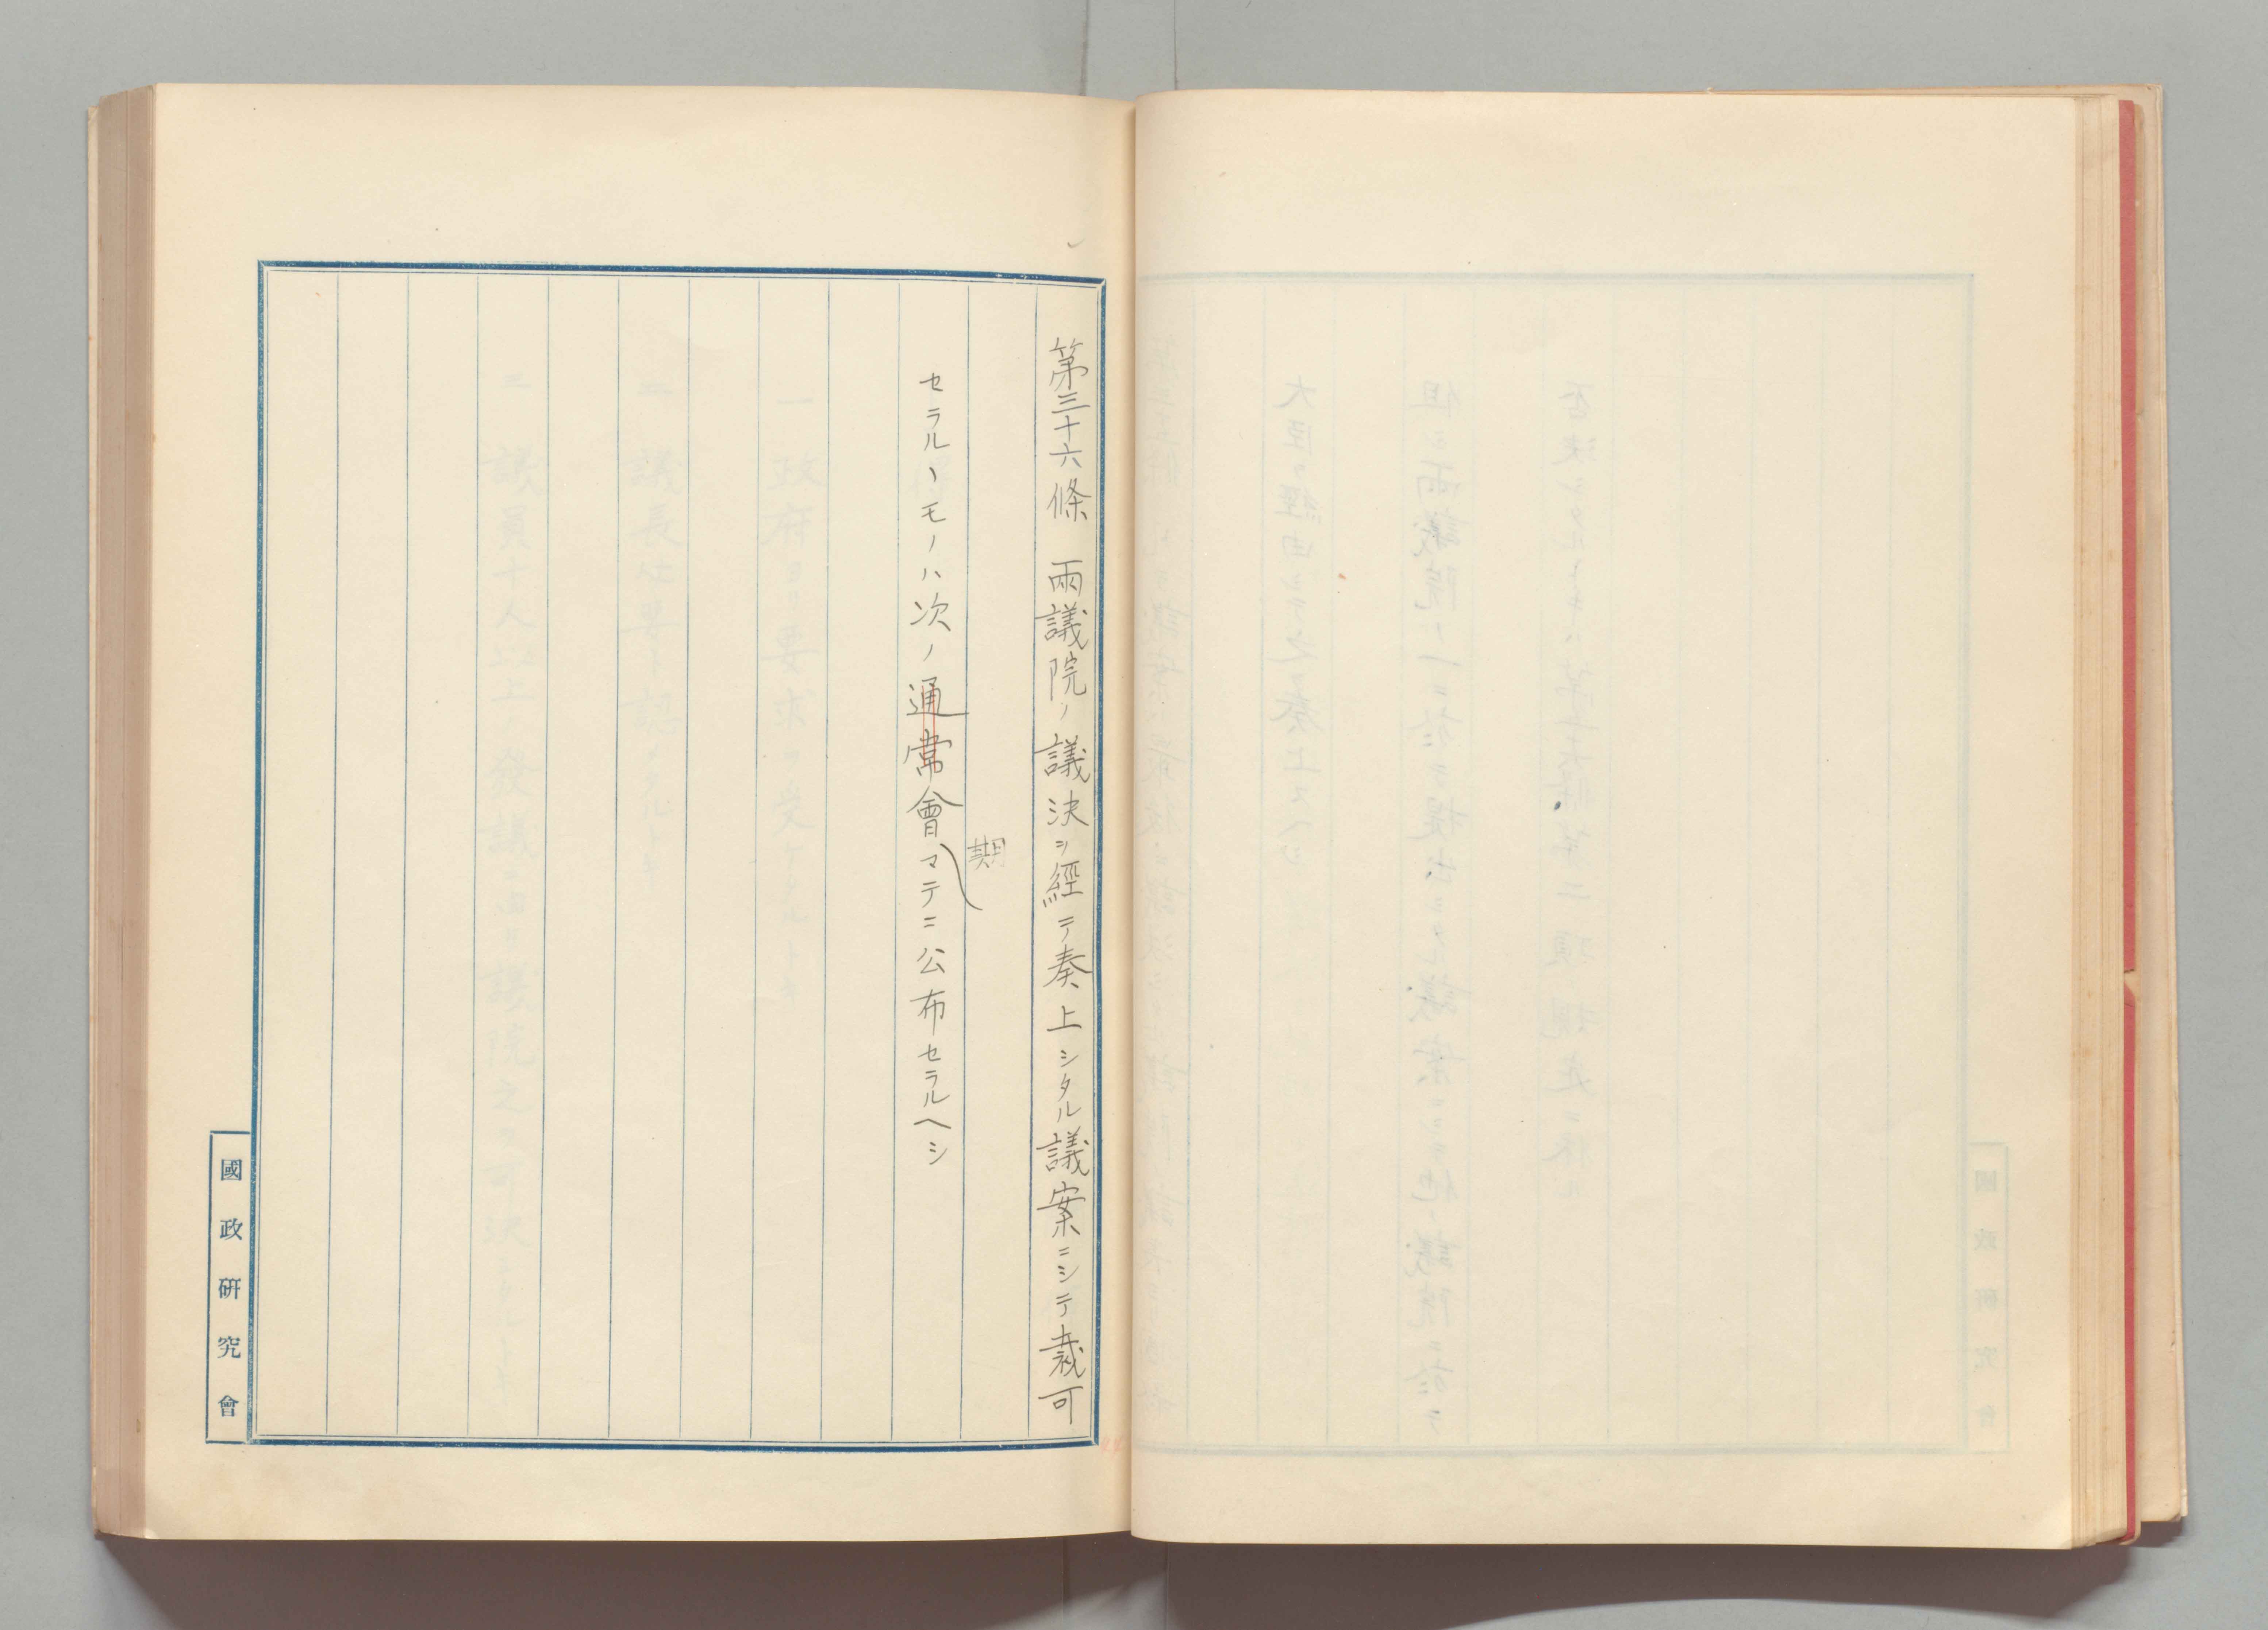 第三十六條　兩議院ノ議決ヲ經テ奏上シタル議案ニシテ裁可
セラルヽモノハ次ノ通常會マテニ公布セラルヘシ
期
國政硏究會